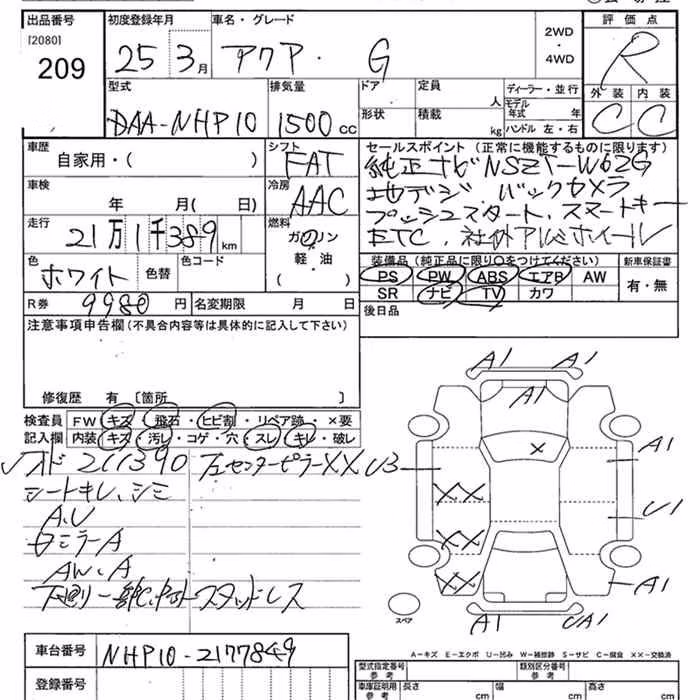 出品番号 初度登録年月 車名・グレード 2WD・4WD 評価点
[2080]
209 25 3月 アクア・ G R
型式 排気量 ドア 定員 人 ディーラー・並行 外装 内装
DAA-NHP10 1500cc 形状 積載 kg モデル年式 年 ハンドル 左・右 C C
車歴 シフト セールスポイント(正常に機能するものに限ります)
自家用・( ) FAT 純正ナビNSZT-W62G
車検 冷房 地デジ、バックカメラ
年 月( 日) AAC プッシュスタート、スマートキー
走行 燃料 ETC、社外アルミホイール
21万1千389km ガソリン・軽油
色 色替 色コード ( ) 装備品(純正品に限り○をつけてください) 新車保証書
ホワイト PS PW ABS エアB AW 有・無
SR ナビ TV カワ
R券 9980円 名変期限 月 日 後日品
注意事項申告欄(不具合内容等は具体的に記入して下さい)
修復歴 有 [箇所 ]
検査員 FW キズ・飛石・ヒビ割・リペア跡・×要
記入欄 内装 キズ・汚レ・コゲ・穴・スレ・キレ・破レ
211390 センターピラーXX
シートキレ、シミ
A.U
ミラーA
AW.A
スタッドレス
A1 A1
A1
×
U3 A1
XX U1
XX
XX A1
スペア A1 UA1
A-キズ E-エクボ U-凹み W-補修跡 S-サビ C-腐食 XX-交換済
車台番号 NHP10-2177849
型式指定番号 参考 類別区分番号 参考
登録番号 車庫証明用 参考 長さ cm 幅 cm 高さ cm